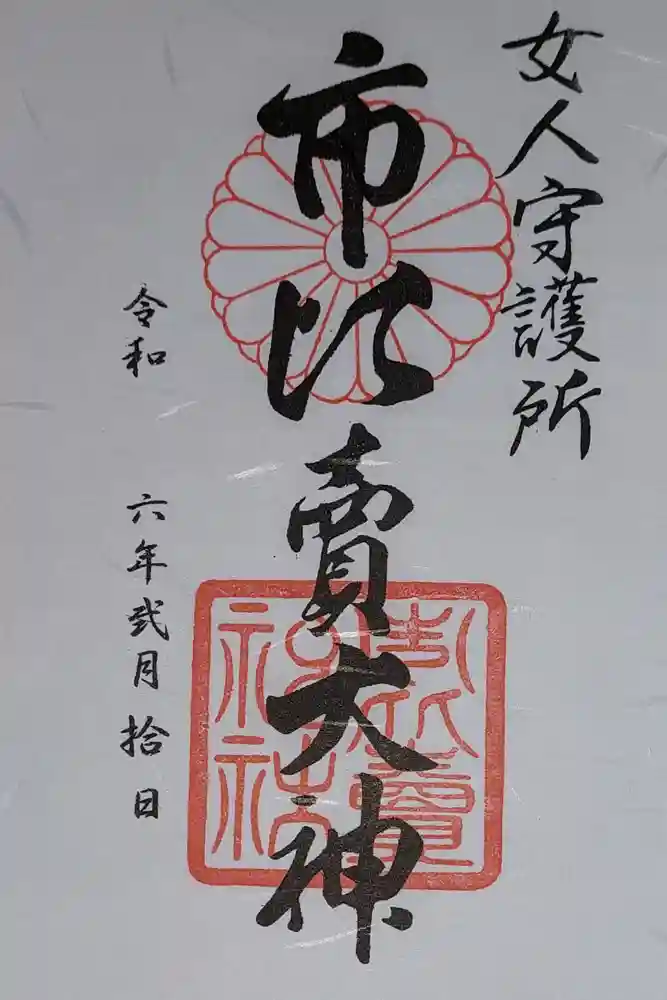 女人守護所
市比賣大神
令和 六年弐月拾日
市比賣神社